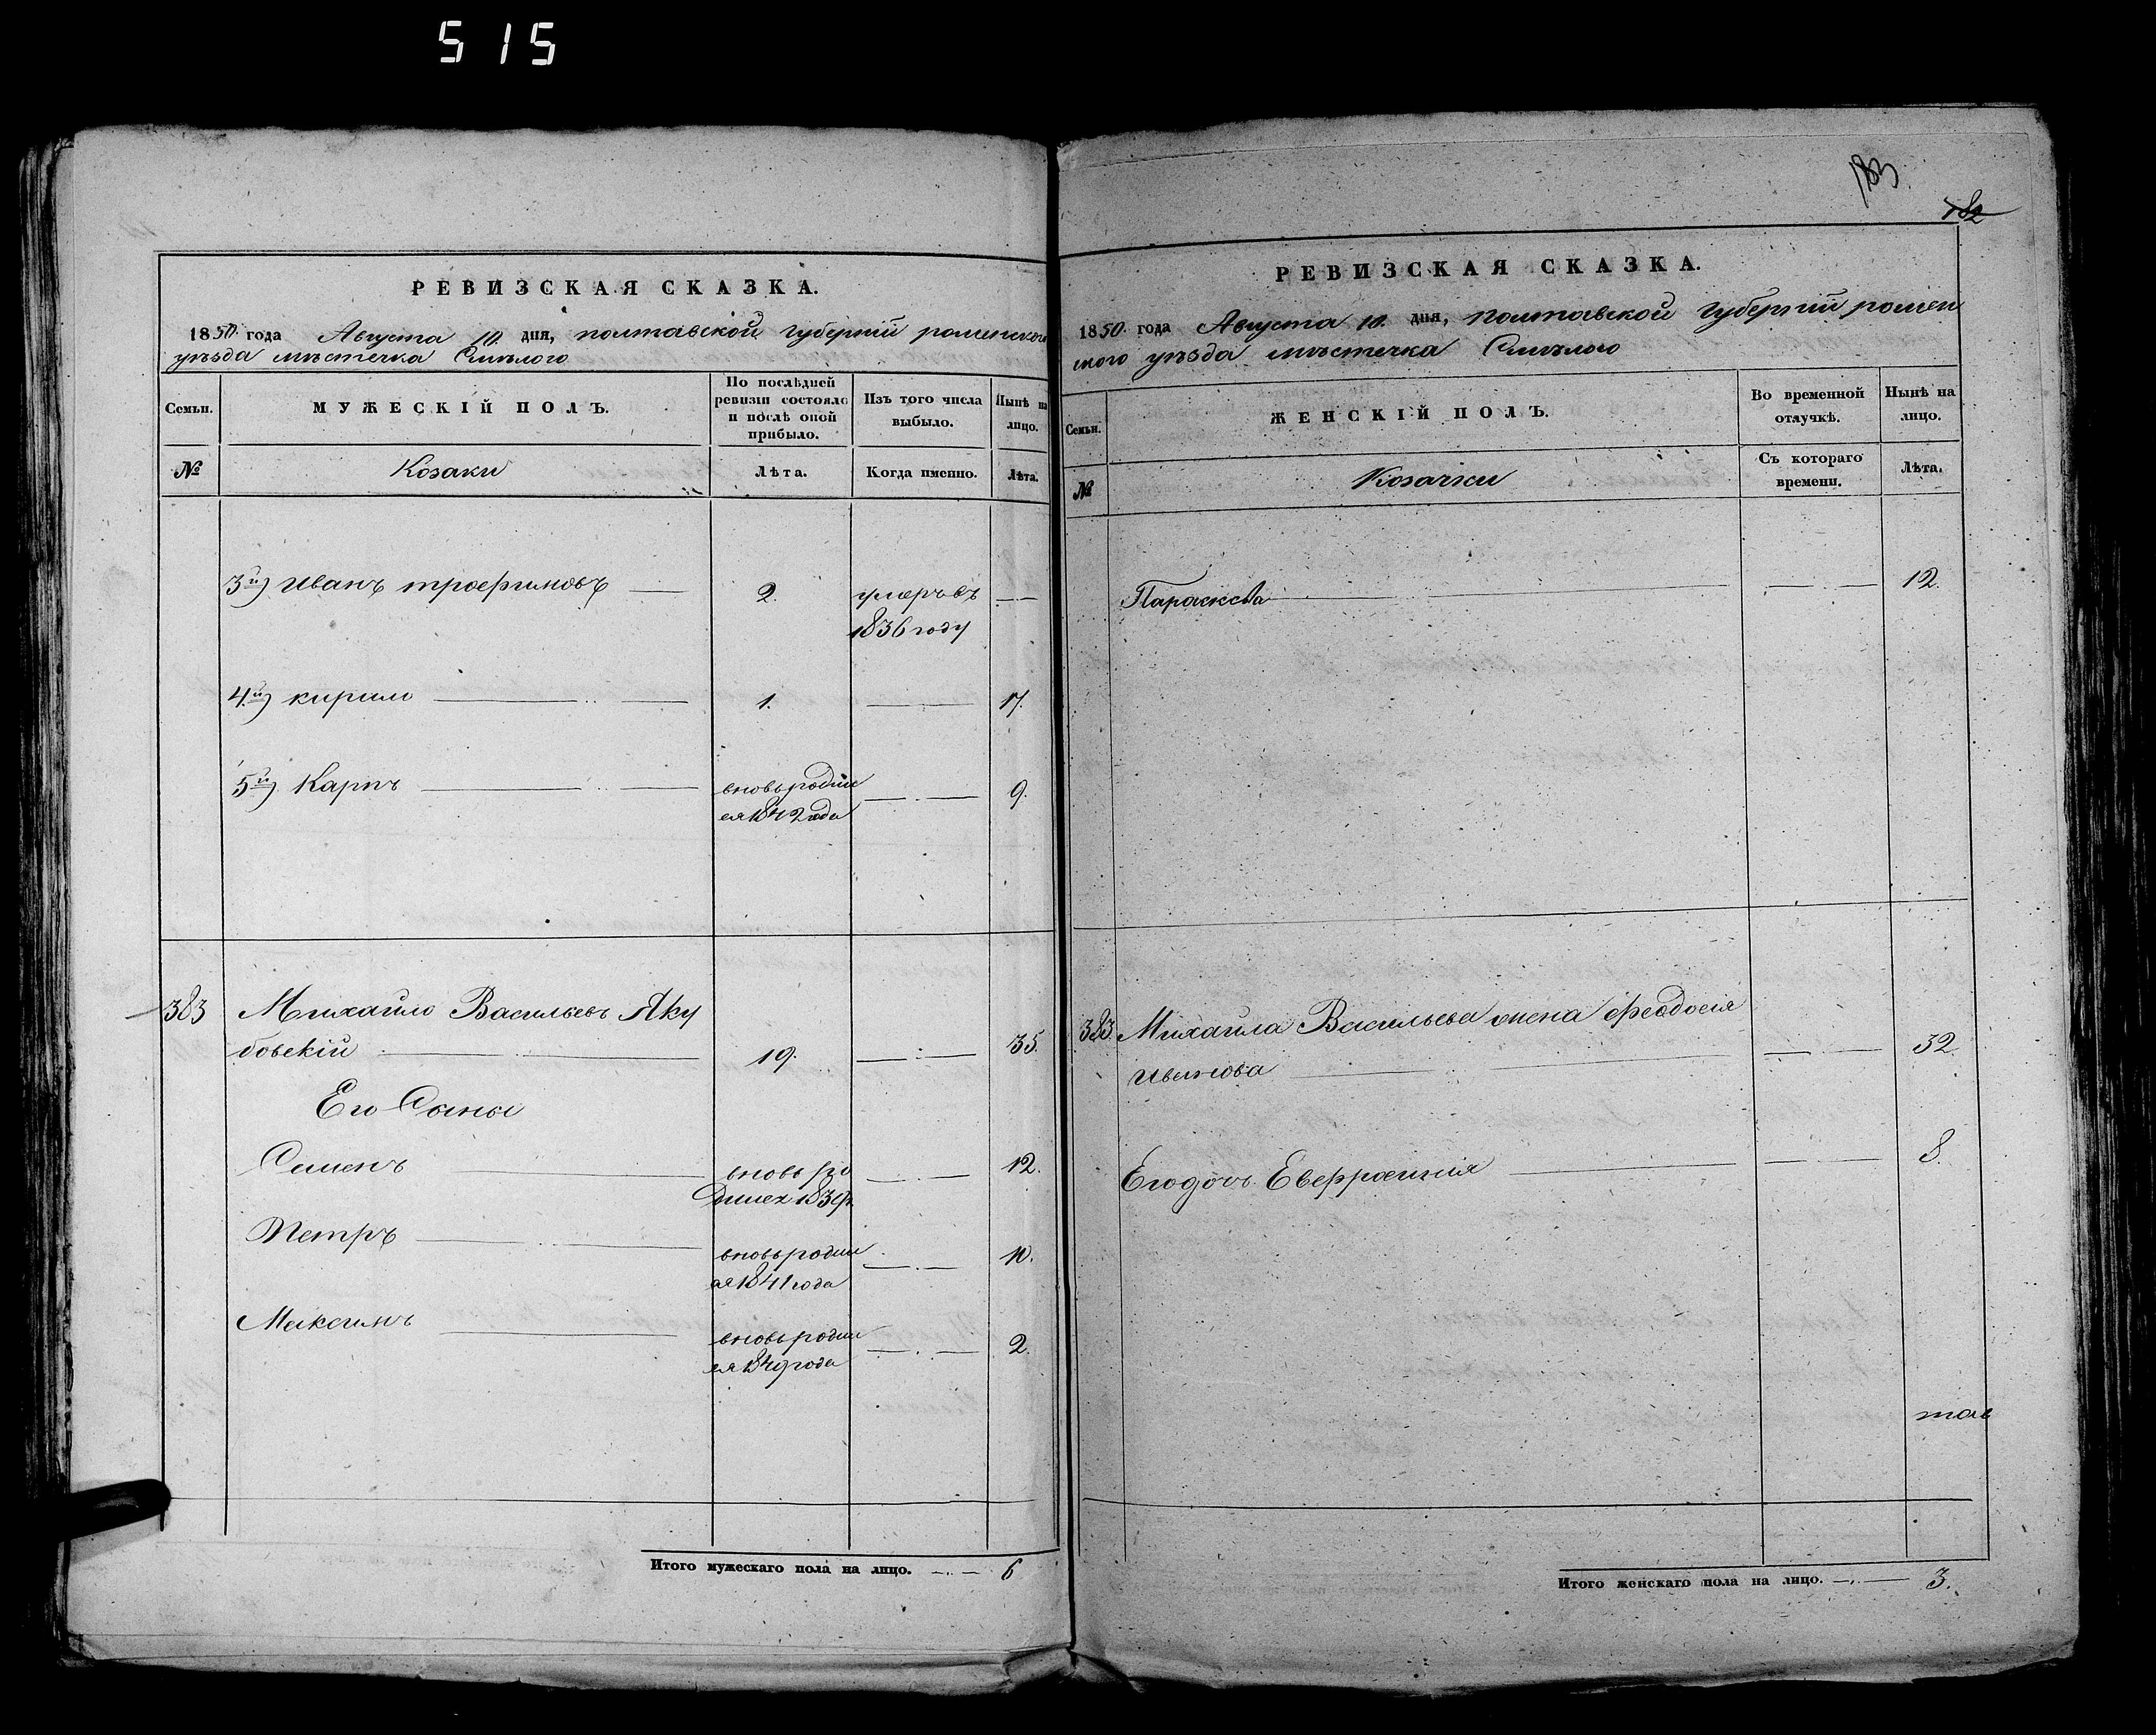 515
РЕВИЗСКАЯ СКАЗКА.
1850. года Августа 10. дня, полтавской губерніи роменского
уѣзда мѣстечка Смѣлого
Семьи.
МУЖЕСКІЙ ПОЛЪ.
По послѣдней
ревизіи состояло
и послѣ оной
прибыло.
Изъ того числа
выбыло.
Нынѣ на
лицо.
№
Козаки
Лѣта.
Когда именно.
Лѣта.
3й) Иванъ трофимовъ
2.
умеръ въ
1836 году
4й) кирило
1.
17.
5й) Карпъ
вновь родил
ся 1842 года
9.
383
Михайло Васильевъ Яку
бовскій
19.
35.
Его Сыны
Семенъ
вновь ро
дился 1839
12.
Петръ
вновь родил
ся 1841 года
10.
Максимъ
вновь родил
ся 1849 года
2.
Итого мужескаго пола на лицо.
6
183.
182
РЕВИЗСКАЯ СКАЗКА.
1850. года Августа 10. дня, полтавской губерніи ромен
ского уѣзда мѣстечка Смѣлого
Семьи.
ЖЕНСКІЙ ПОЛЪ.
Во временной
отлучкѣ.
Нынѣ на
лицо.
№
Козачки
Съ котораго
времени.
Лѣта.
Параскева
12.
383.
Михайла Васильева жена Феодосія
Иванова
32.
Его дочь Евфросинія
8.
Итого женскаго пола на лицо.
3.